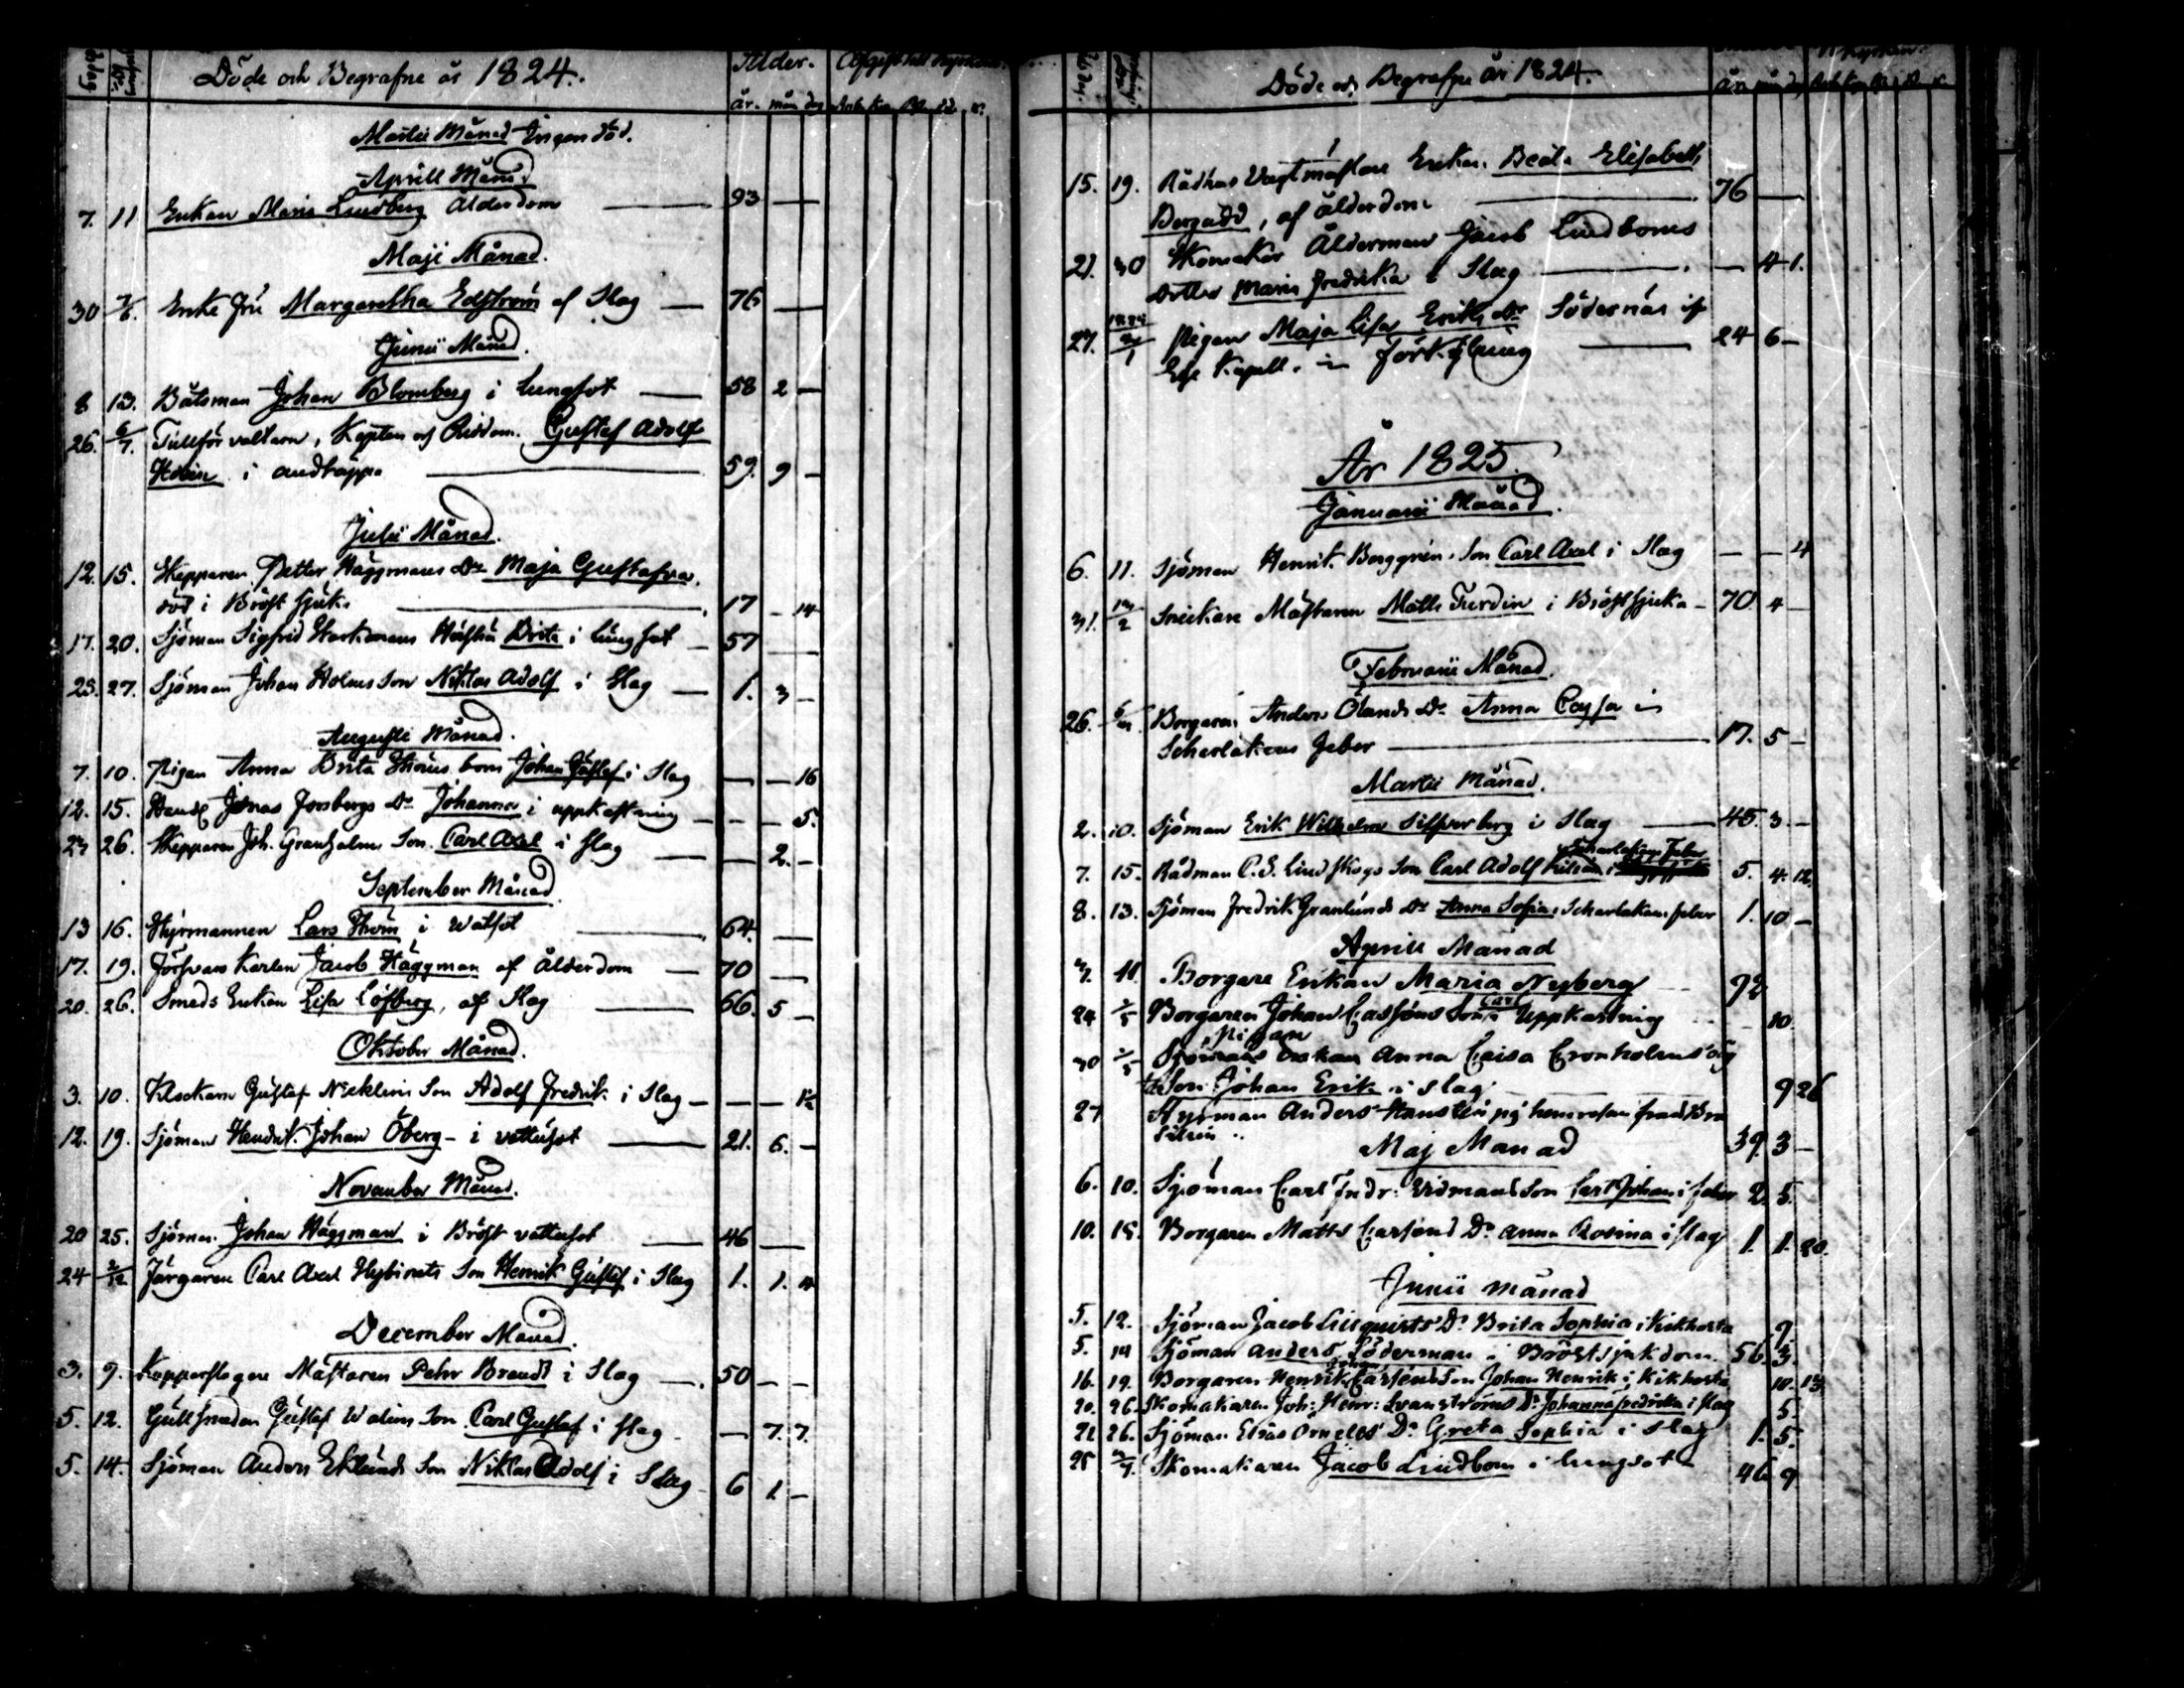 Döde och Begrafne år 1824.
Ålder.
år. mån dag
Martii Månad Ingen död.
Aprill Månad
7. 11 Enkan Maria Lindberg Ålderdom 93 —
Maji Månad.
30 7/6. Enke Fru Margaretha Edström af Slag — 76 —
Junii Månad.
8 13. Båtsman Johan Blomberg i Lungsot — 58 2 —
26. 6/7. Tullförvaltarn, Kapten och Riddarn. Gustaf Adolf
i andtäppa 59. 9 —
Julii Månad.
12. 15. Skepparen Petter Häggmans Dr Maja Gustafva.
död i Bröst sjuka 17 — 14
17. 20. Sjöman Sigfrid Harkmans Hustru Brita i lungsot — 57 —
25. 27. Sjöman Johan Holms Son Niklas Adolf i Slag — 1. 3 —
Augusti Månad.
7. 10. Pigan Anna Brita Thorus barn Johan Gustaf i Slag — — 16
12. 15. Jonas Forsbergs Dr Johanna i uppkastning — — 5.
23 26. Skepparen Joh. Granholms Son. Carl Axel i slag — 2. —
September Månad
13 16. Styrmannen Lars Thorn i Watsot 64. —
17. 19. Försvars Karlen Jacob Häggman af Ålderdom — 70 —
20. 26. Smeds Enkan Lisa Löfberg, af Slag — 66. 5 —
Oktober Månad.
3. 10. Klockarn Gustaf Neklins Son Adolf Fredrik i Slag — — — 1½
12. 19. Sjöman Hendrik Johan Öberg — i vattusot — 21. 6. —
November Månad.
20 25. Sjöman Johan Häggman i Bröst vattusot — 46 —
24 2/12 Färgaren Carl Axel Son Henrik Gustaf i Slag 1. 1. 4
December Månad.
3. 9. Kopparslagare Mästaren Pehr Brandt i Slag — 50 — —
5. 12. Gullsmeden Gustaf Walins Son Carl Gustaf i slag — — 7. 7.
5. 14. Sjöman Anders Eklunds Son Niklas Adolf i Slag 6 1. —
Döde och Begrafne år 1824.
15. 19. Rådhus Vagtmästare Enkan. Beata Elisabeth
, af ålderdom 76 —
21. 30 Skomakar Ålderman Jacob Lindboms
dotter Maria Fredrika i Slag — 4 1.
27. Pigan Maja Lisa Eriks Dr Södernäs
Kapell. in förkylning 24 6 —
År 1825.
Januarii Månad.
6. 11. Sjöman Henrik Berggréns Son Carl Axel i Slag — — 4
31. 13/2 Snickare Mästaren Matts Turdin i Bröstsjuka — 70 4 —
Februarii Månad.
26. Borgaren Anders Ölands Dr Anna Caysa in
Scharlakans feber 17. 5 —
Martii Månad.
2. 10. Sjöman Erik Wilhelm Silfverberg i Slag — 45. 3. —
Scharlakans feber
7. 15. Rådman C. S. Lindskogs Son Carl Adolf 5. 4. 12.
8. 13. Sjöman Fredrik Granlunds Dr Anna Sofia i Scharlakans feber 1. 10 —
Aprill Månad
11. Borgare Enkan Maria Nyberg 92
Carl
24 Borgaren Johan Carlsons Son i Uppkastning 10
Pigan
30 Anna Caisa Cronholms oäg
ta Son Johan Erik i slag 9 26
27 Styrman Anders på hemresan från Bra
silien 39. 3 —
Maj Månad
6. 10. Sjöman Carl Fredr: Widmans Son Carl Johan i feber 2. 5.
10. 15. Borgaren Matts Carlsons Dr Anna Rosina i slag 1. 1. 20.
Junii månad
5. 12. Sjöman Jacob Liliquists Dr Brita Sophia i Kikhosta 9
5. 14 Sjöman Anders Söderman i Bröstsjukdom. 56. 3.
Johan
16. 19. Borgaren Henrik Carlsons Son Johan Henrik i Kikhosta 10. 13
20. 26. Skomakaren Joh: Henr: Svanströms Dr Johanna Fredrika i slag 5.
22 26. Sjöman Elias Örnells Dr Greta Sophia i slag 1. 5.
25 Skomakaren Jacob Lindbom i lungsot 46 9